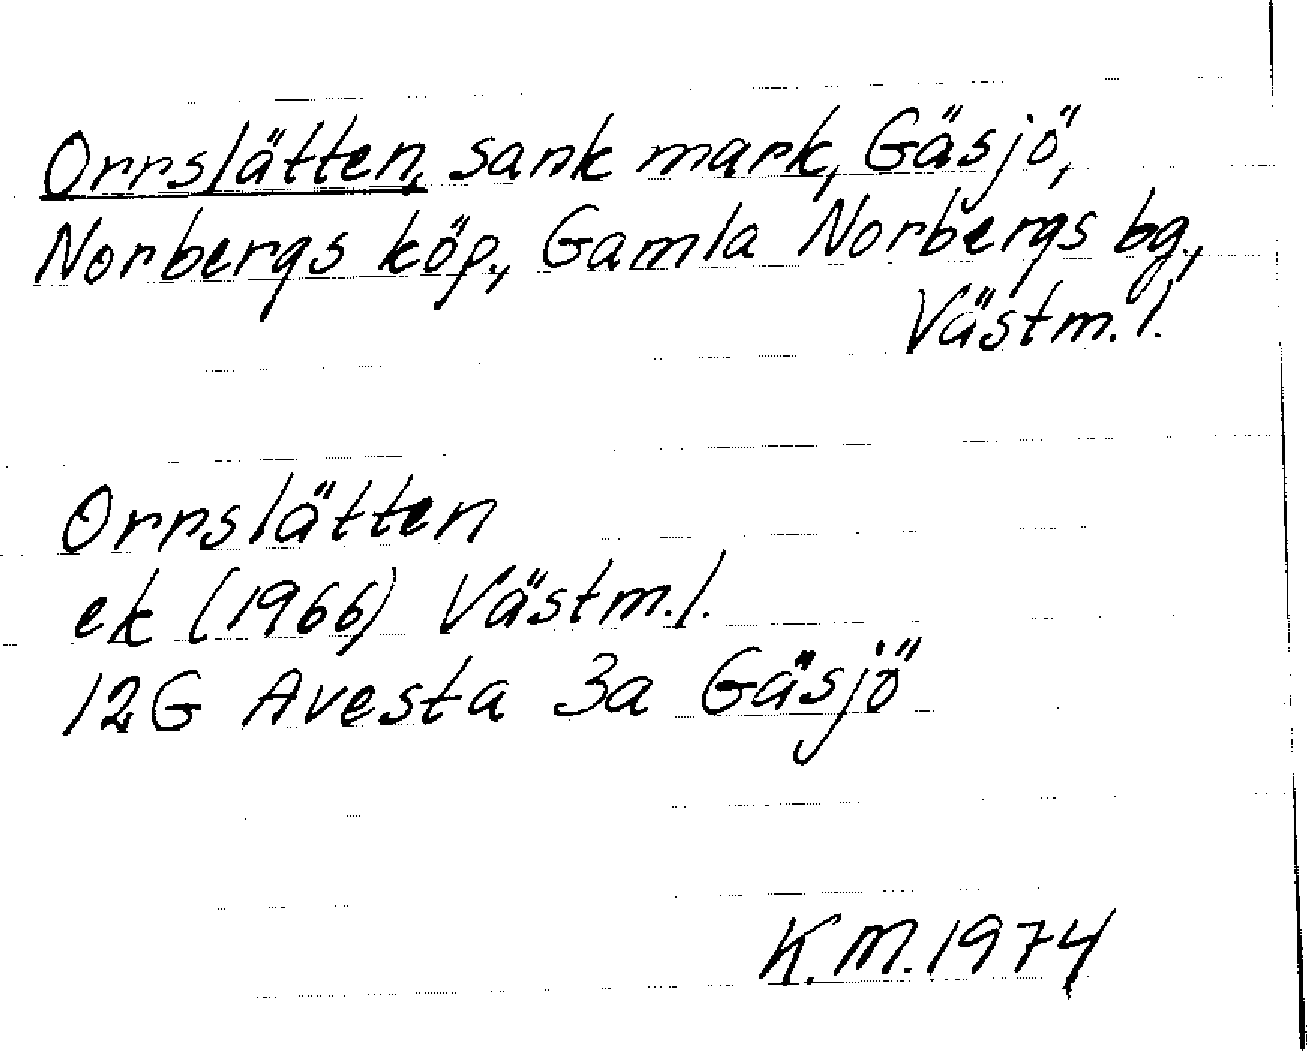 Orrslätten, sank mark, Gäsjö,
Norbergs köp., Gamla Norbergs bg.,
Västm. l.
Orrslätten
ek (1966) Västm. l.
12G Avesta 3a Gäsjö
K.M. 1974